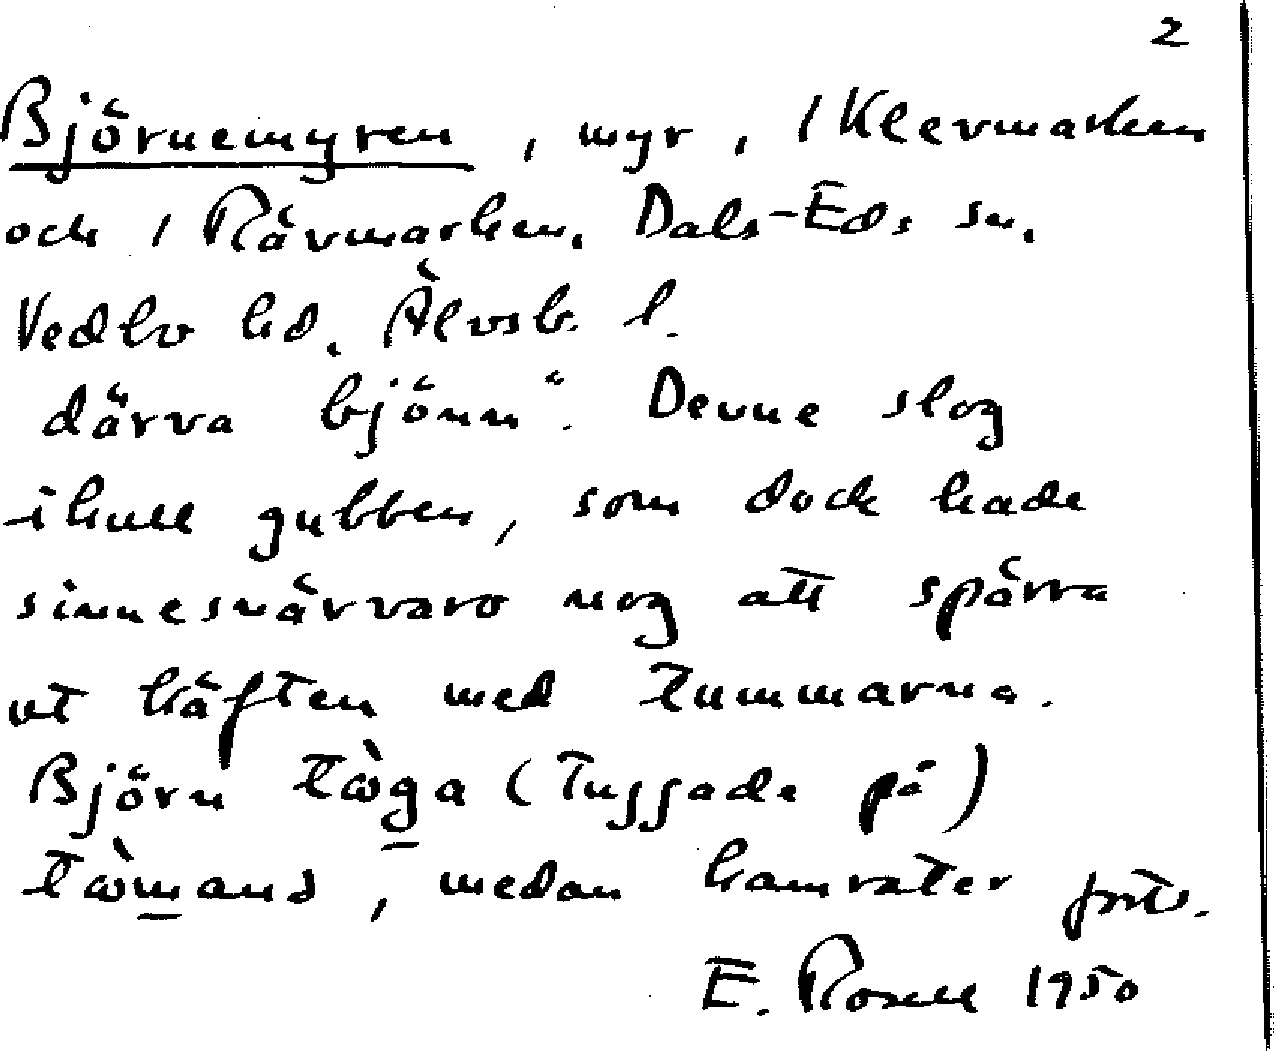 2
Björnemyren, myr, i Klevmarken
och i Rävmarken. Dals-Eds sn.
Vedbo hd. Älvsb. l.
därva björnn". Denne slog
ikull gubben, som dock hade
sinnesnärvaro nog att spärra
ut käften med tummarna.
Björn tɷ̀ga (tuggade på)
tɷ̀mans, medan kamrater forts.
E. Rosell 1950